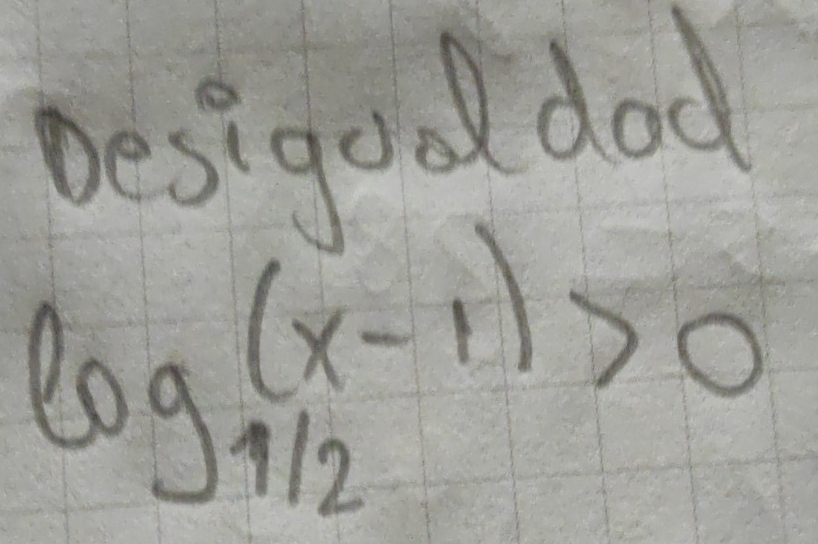 Desigualdad
log_{1/2} (x-1) > 0